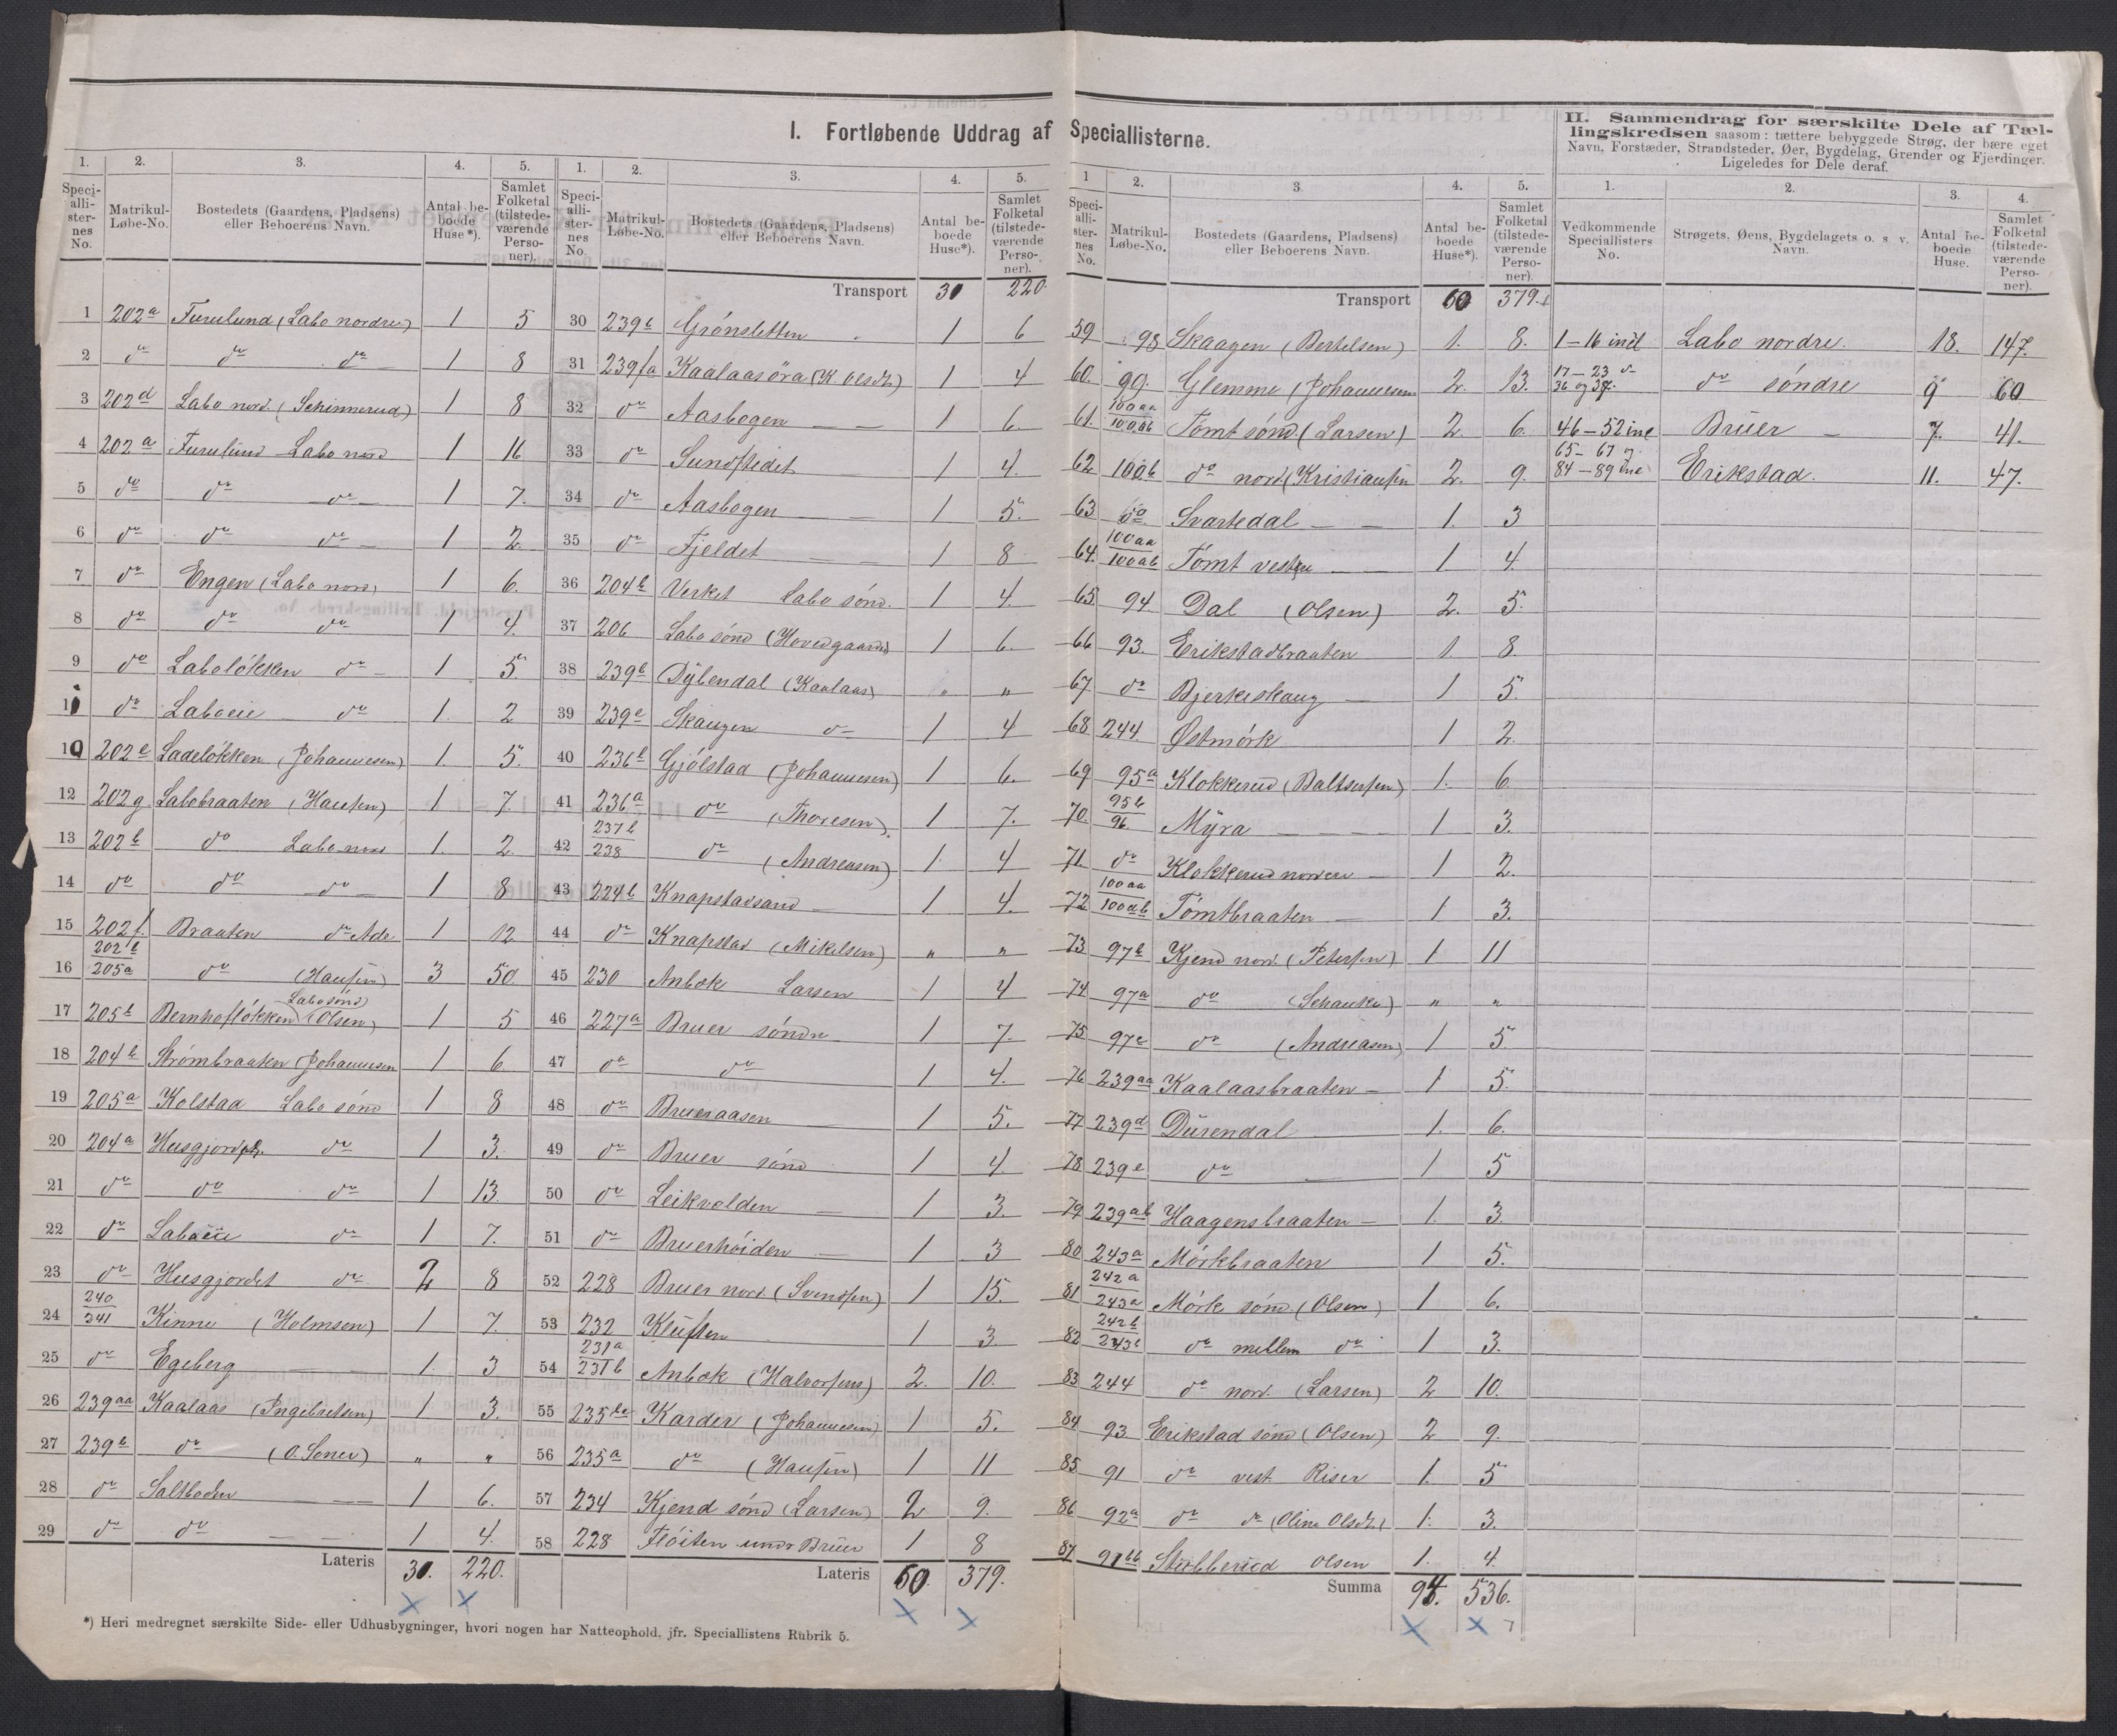 I. Fortløbende Uddrag af Speciallisterne.
II. Sammendrag for særskilte Dele af Tællingskredsen saasom: tættere bebyggede Strøg, der bære eget
Navn, Forstæder, Strandsteder, Øer, Bygdelag, Grender og Fjerdinger.
Ligeledes for Dele deraf.
1. 2. 3. 4. 5.
Speciallisternes No. Matrikul-Løbe-No. Bostedets (Gaardens, Pladsens) eller Beboerens Navn. Antal beboede Huse*). Samlet Folketal (tilstedeværende Personer).
1 202a Furulund (Labo nordre) 1 5
2 do do do 1 8
3 202d Labo nord. (Schinnerud) 1 8
4 202a Furulund Labo nord 1 16
5 do do do 1 7.
6 do do do 1 2.
7 do Engen (Labo nord) 1 6.
8 do do do 1 4.
9 do Laboløkken do 1 5.
11 do Laboeie do 1. 2
10 202e Ladeløkken (Johannesen) 1 5.
12 202g Labobraaten (Hansen) 1 7.
13 202b do Labo nord 1. 2.
14 do do do 1 8
15 202f. Braaten do Adr 1 12
16 202b 205a do (Hansen) 3 50
17 205b Bernhofløkken Labo sønd (Olsen) 1 5
18 204b Strømbraaten (Johannesen 1 6.
19 205a Kolstad Labo sønd 1 8
20 204a Husgjordet. do 1 3.
21 do do do 1 13.
22 do Laboeie do 1 7.
23 do Husgjordet do 2 8
24 240 241 Kinne (Holmsen) 1 7.
25 do Egeberg 1. 3
26 239aa Kaalaas (Ingebretsen) 1 3.
27 239b do (O. Soner) " "
28 do Saltboden 1 6.
29 do do 1 4.
Lateris 30. 220.
1. 2. 3. 4. 5.
Speciallisternes No. Matrikul-Løbe-No. Bostedets (Gaardens, Pladsens) eller Beboerens Navn. Antal beboede Huse*). Samlet Folketal (tilstedeværende Personer).
Transport 30 220.
30 239b Grønsletten 1 6
31 239fa Kaalaasøra (K. Olsdt.) 1 4
32 do Aasbogen 1 6
33 do Sundstedet 1 4.
34 do Aasbogen 1 5.
35 do Fjeldet 1 8
36 204b Verket Labo sønd. 1 4.
37 206 Labo sønd (Hovedgaard) 1 6.
38 239b Dyblendal (Kaalaas) " "
39 239e Skaugen do 1 4
40 236b Gjølstad (Johannesen) 1 6.
41 236a do (Thoresen). 1 7.
42 237b 238 do (Andreasen) 1. 4
43 224b Knapstadsand 1 4.
44 do Knapstad (Mikelsen) " "
45 230 Anbæk Larsen 1 4
46 227a Bruer søndre 1 7.
47 do do 1 4.
48 do Brueraasen 1 5.
49 do Bruer sønd 1 4
50 do Leikvolden 1 3.
51 do Bruerhøiden 1 3
52 228 Bruer nord. (Svendsen) 1 15.
53 232 Kluften 1 3.
54 231a 231b Anbæk (Halvorsen) 2. 10.
55 235 Karder (Johannesen) 1 5.
56 235a do (Hansen) 1 11
57 234 Kjend sønd (Larsen) 2 9.
58 228 Fløiten under Bruer 1 8
Lateris 60. 379.
*) Heri medregnet særskilte Side- eller Udhusbygninger, hvori nogen har Natteophold, jfr. Speciallistens Rubrik 5.
1 2. 3. 4. 5.
Speciallisternes No. Matrikul-Løbe-No. Bostedets (Gaardens, Pladsens) eller Beboerens Navn. Antal beboede Huse*). Samlet Folketal (tilstedeværende Personer).
Transport 60 379.
59 98 Skaagen (Bertelsen) 1. 8.
60. 99. Glemme (Johannesen 2. 13.
61. 100aa 100ab Tømt sønd (Larsen) 2. 6.
62 100b do nord. (Kristiansen 2. 9.
63 do Svartedal 1. 3
64. 100aa 100ab Tømt vestre 1. 4.
65. 94. Dal (Olsen) 2. 5.
66 93. Erikstadbraaten 1. 8.
67. do Bjerkeskaug 1 5.
68 244. Østmørk 1 2.
69 95a Klokkerud (Baltsersen) 1. 6
70. 95b 96. Myra 1 3.
71. do Klokkerud nordre 1 2.
72 100aa 100ab Tømtbraaten 1 3.
73 97b Kjend nord. (Petersen) 1 11
74 97a do (Schanke) " "
75 97c do (Andreasen) 1 5.
76 239aa Kaalaasbraaten 1 5.
77 239d Durendal 1. 6.
78 239e do 1 5
79 239ab Haagensbraaten 1. 3.
80 243a Mørkbraaten 1 5.
81 242a 243a Mørk sønd (Olsen) 1 6.
82 242b 243b do mellem do 1 3.
83 244 do nord. (Larsen) 2 10.
84 93. Erikstad sønd (Olsen) 2 9.
85. 91 do vest. Riser 1. 5
86 92a do do (Oline Olsdt.) 1. 3.
87 Stubberud Olsen 1. 4.
Summa 94. 536.
1. 2. 3. 4.
Vedkommende Speciallisters No. Strøgets, Øens, Bygdelagets o. s. v. Navn. Antal beboede Huse. Samlet Folketal (tilstedeværende Personer).
1-16 incl Labo nordre. 18. 147.
17-23 36 og 37. do søndre 9 60
46-52 inc Bruer 7. 41.
65-67 og 84-89 inc Erikstad. 11. 47.